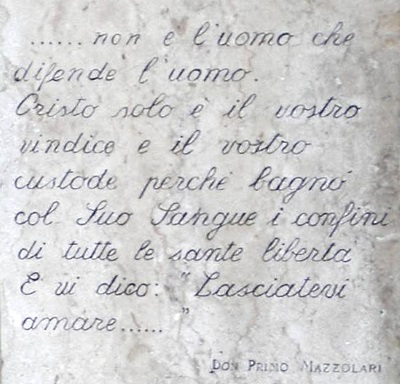 ...... non e l'uomo che
difende l'uomo.
Cristo solo è il vostro
vindice e il vostro
custode perchè bagnò
col Suo Sangue i confini
di tutte le sante libertà
E vi dico: "Lasciatevi
amare...... "
DON PRIMO MAZZOLARI